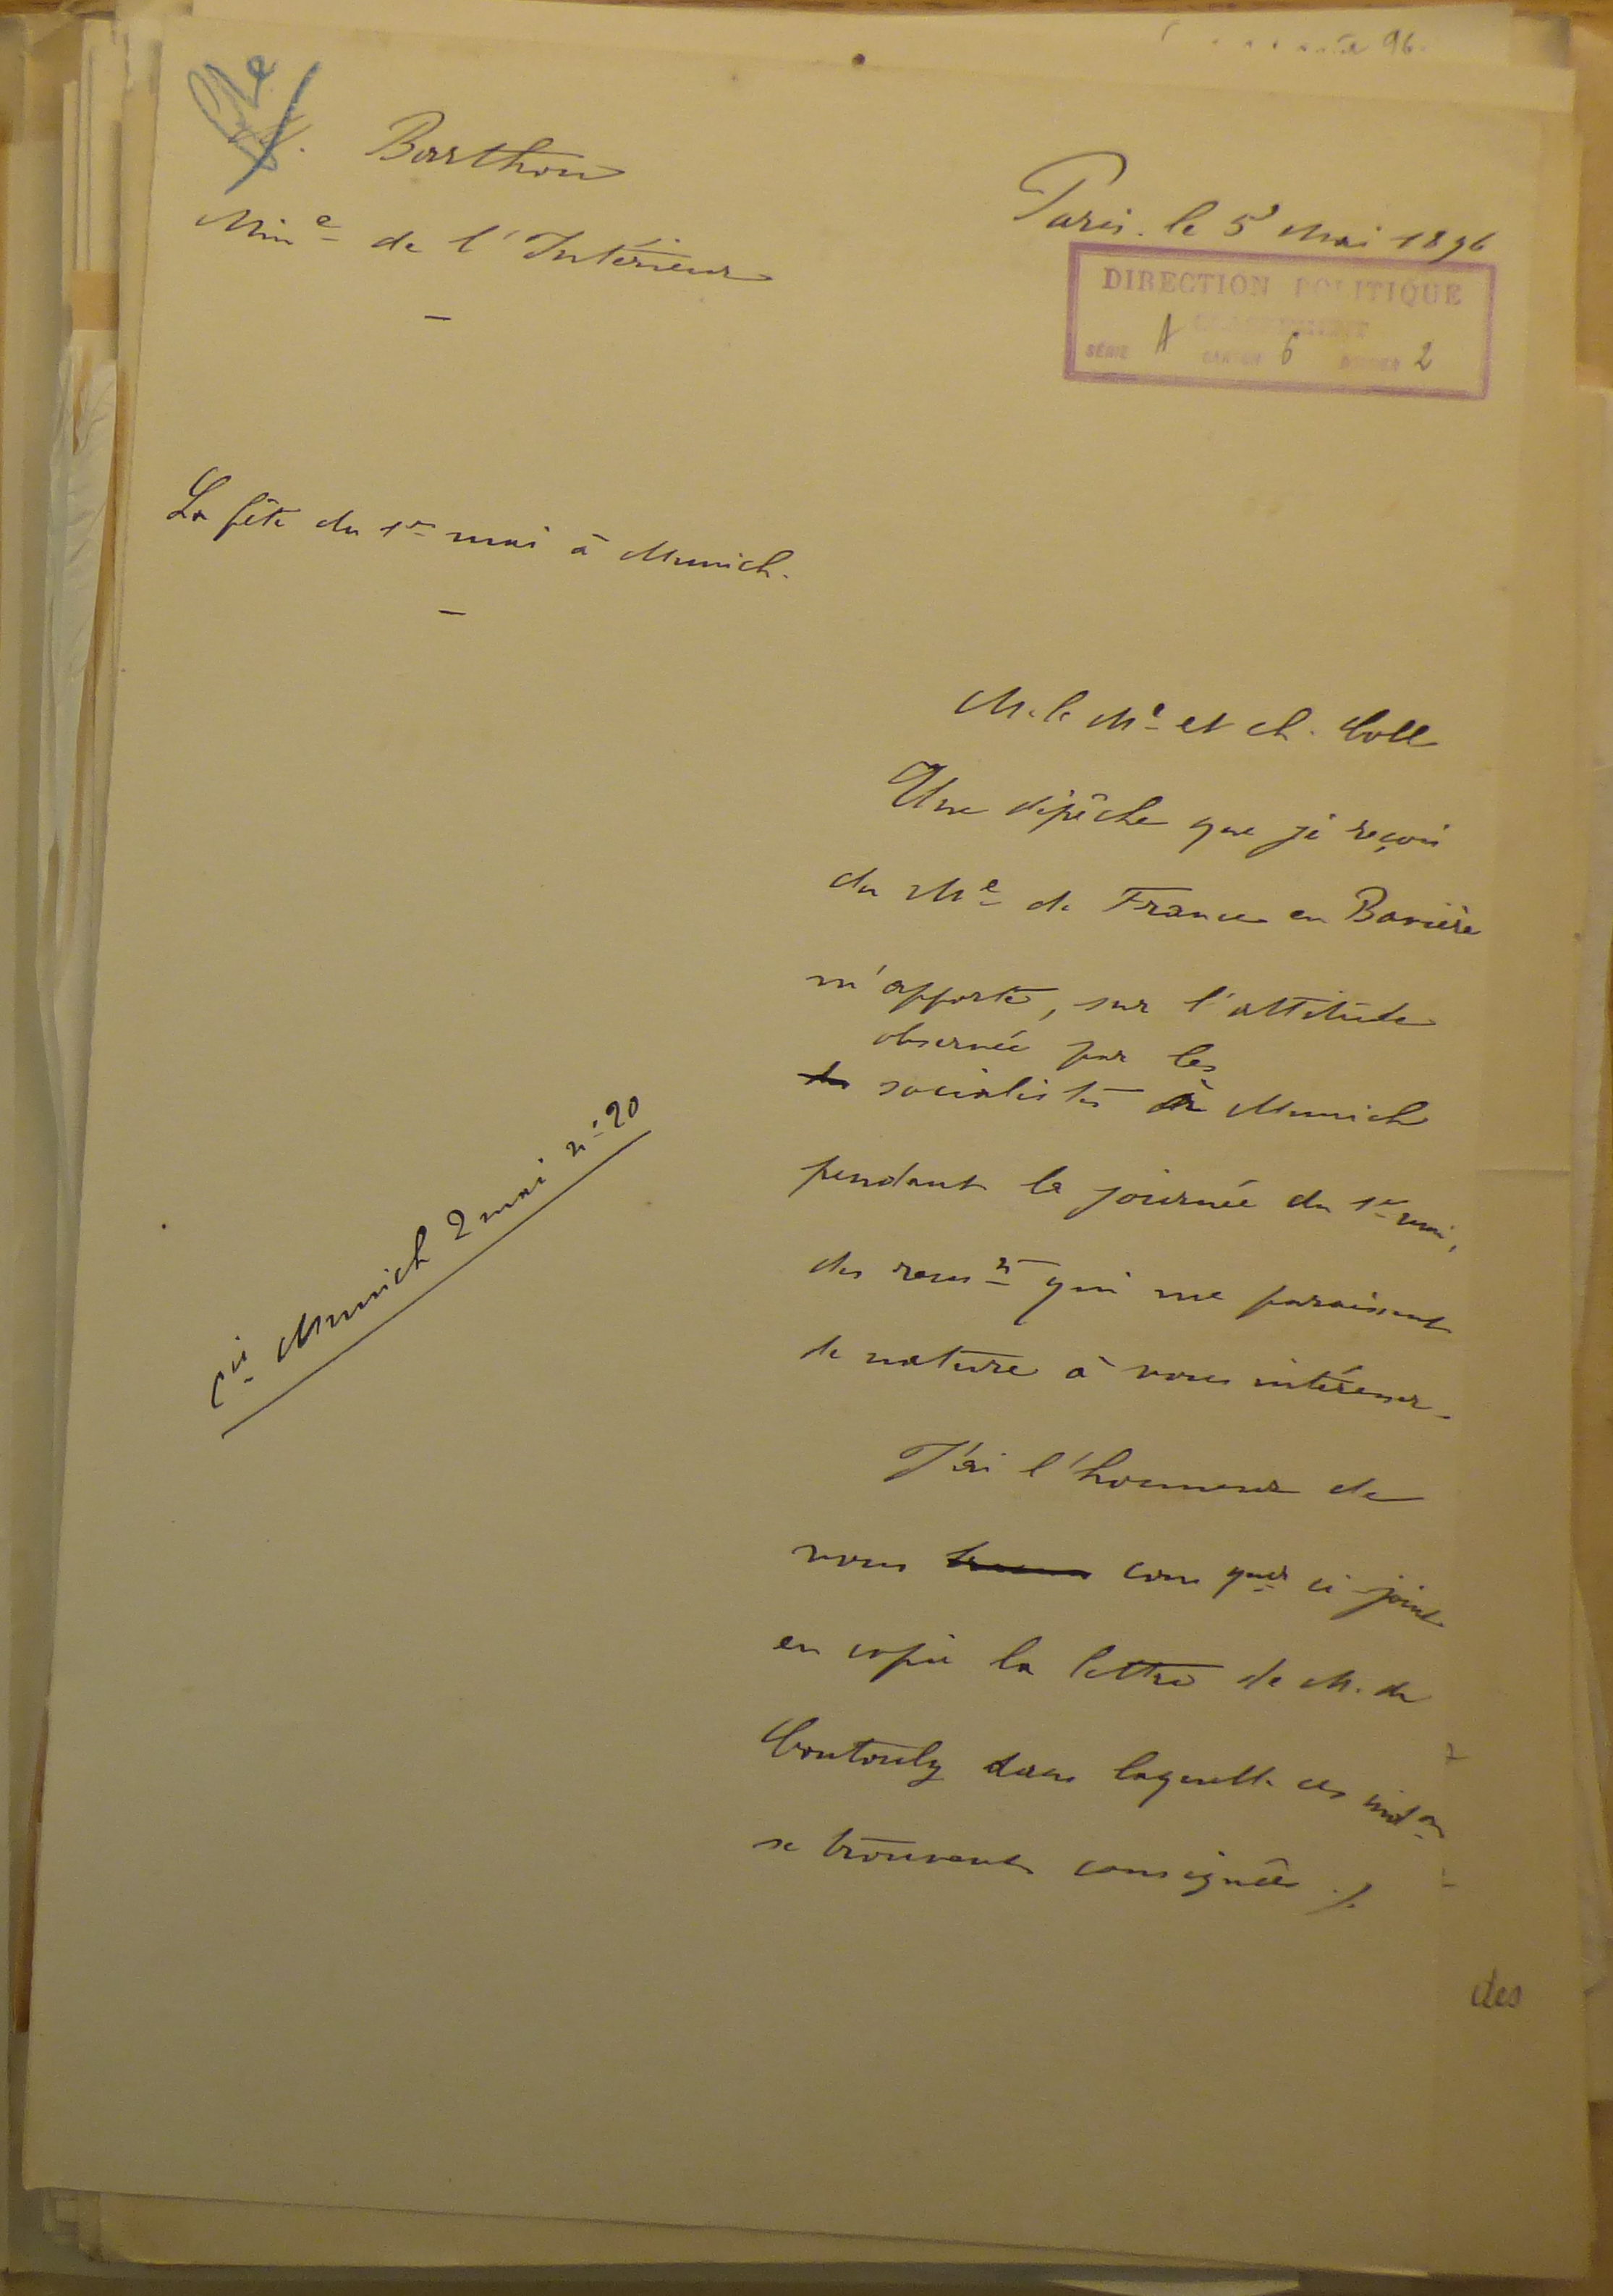 M. Barthou
Min.e de l'Intérieur
Paris. le 5 Mai 1896
DIRECTION POLITIQUE
SÉRIE A CARTON 6 DOSSIER 2
La fête du 1er mai à Munich.
M. le Me et ch. Coll
Une dépêche que je reçois
du Me de France en Bavière
m'apporte, sur l'attitude
observée par les
des socialistes à Munich
pendant la journée du 1er mai,
des rensts qui me paraissent
de nature à vous intéresser.
Cie Munich 2 mai no 20
J'ai l'honneur de
vous comquer ci-joint
en copie la lettre de M. de
Coutouly dans laquelle ces indons
se trouvent consignées ./.
des
96